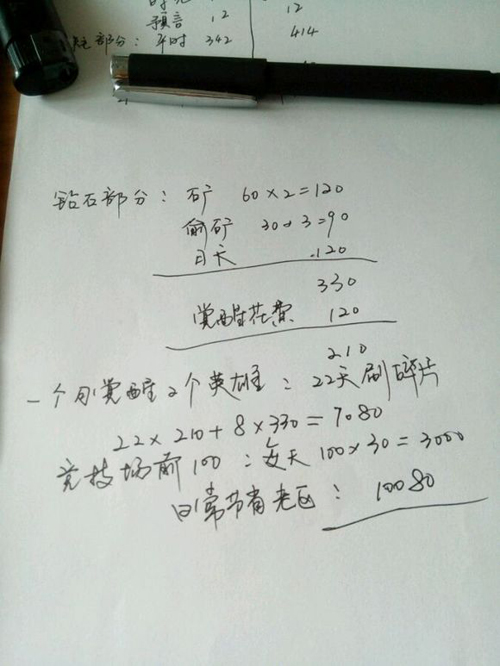 预言 12 12
部分：平时 342 414
钻石部分：矿 60×2=120
偷矿 30×3=90
日天 120
330
觉醒花费 120
210
一个月觉醒2个英雄：22天刷碎片
22×210+8×330=7080
竞技场前100：每天100×30=3000
日常节省老区：10080